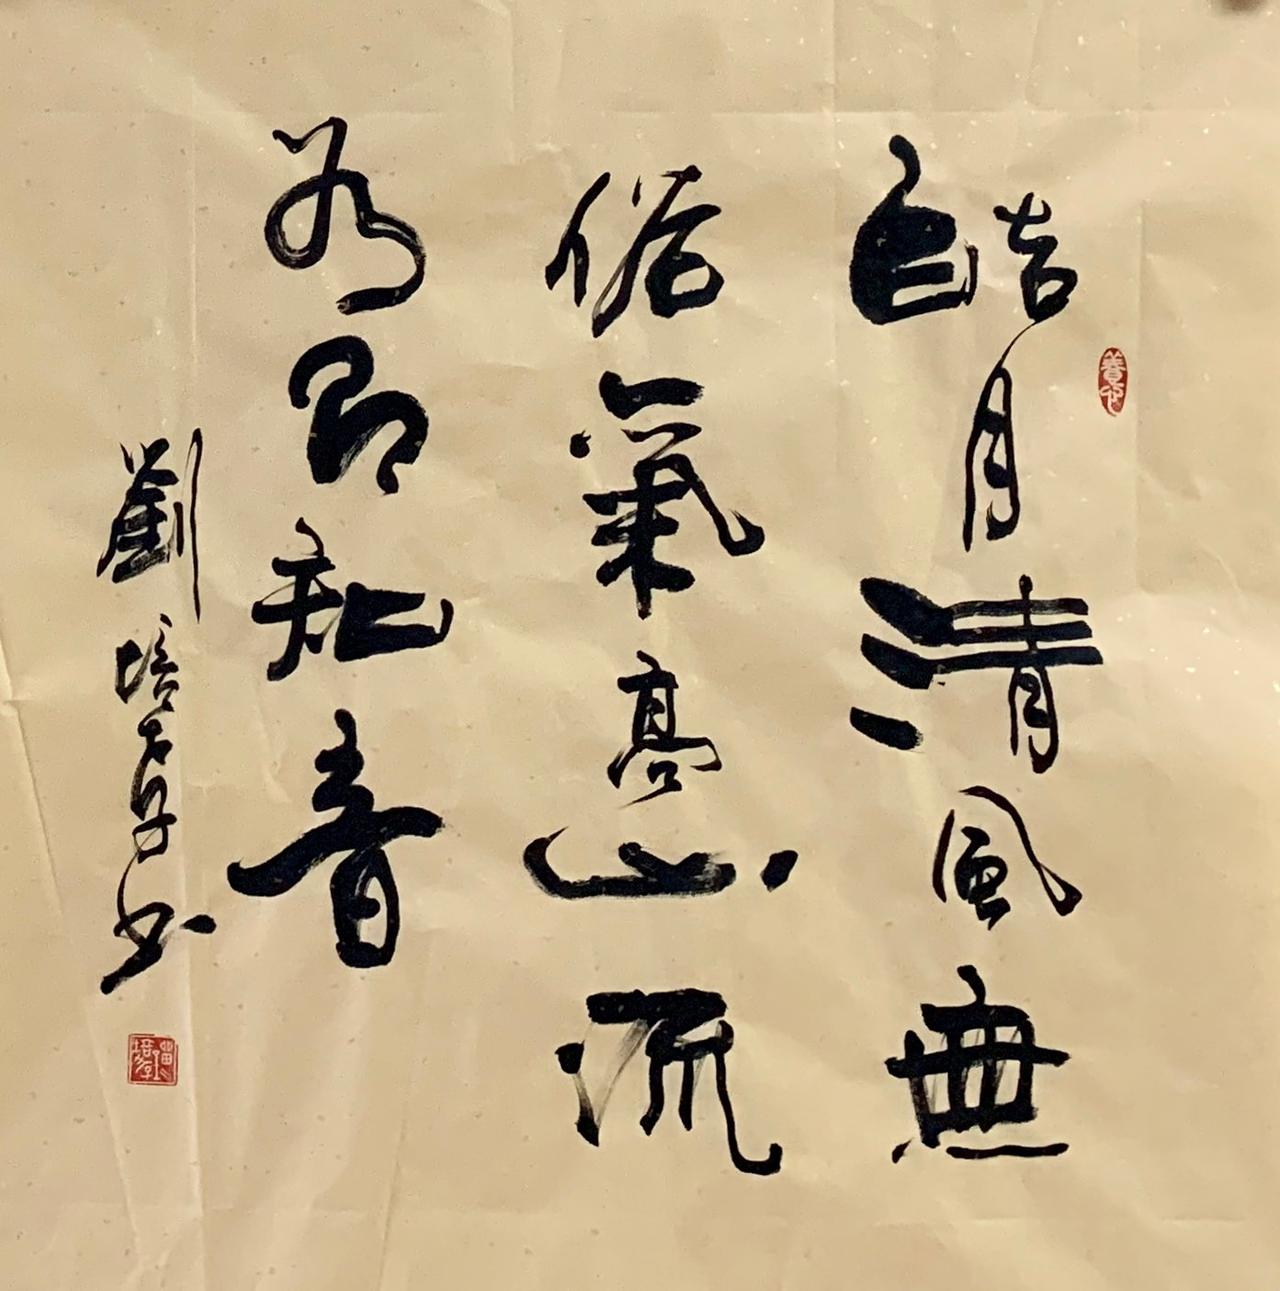 皓月清風無
俗氣高山流
知音
劉培孝书